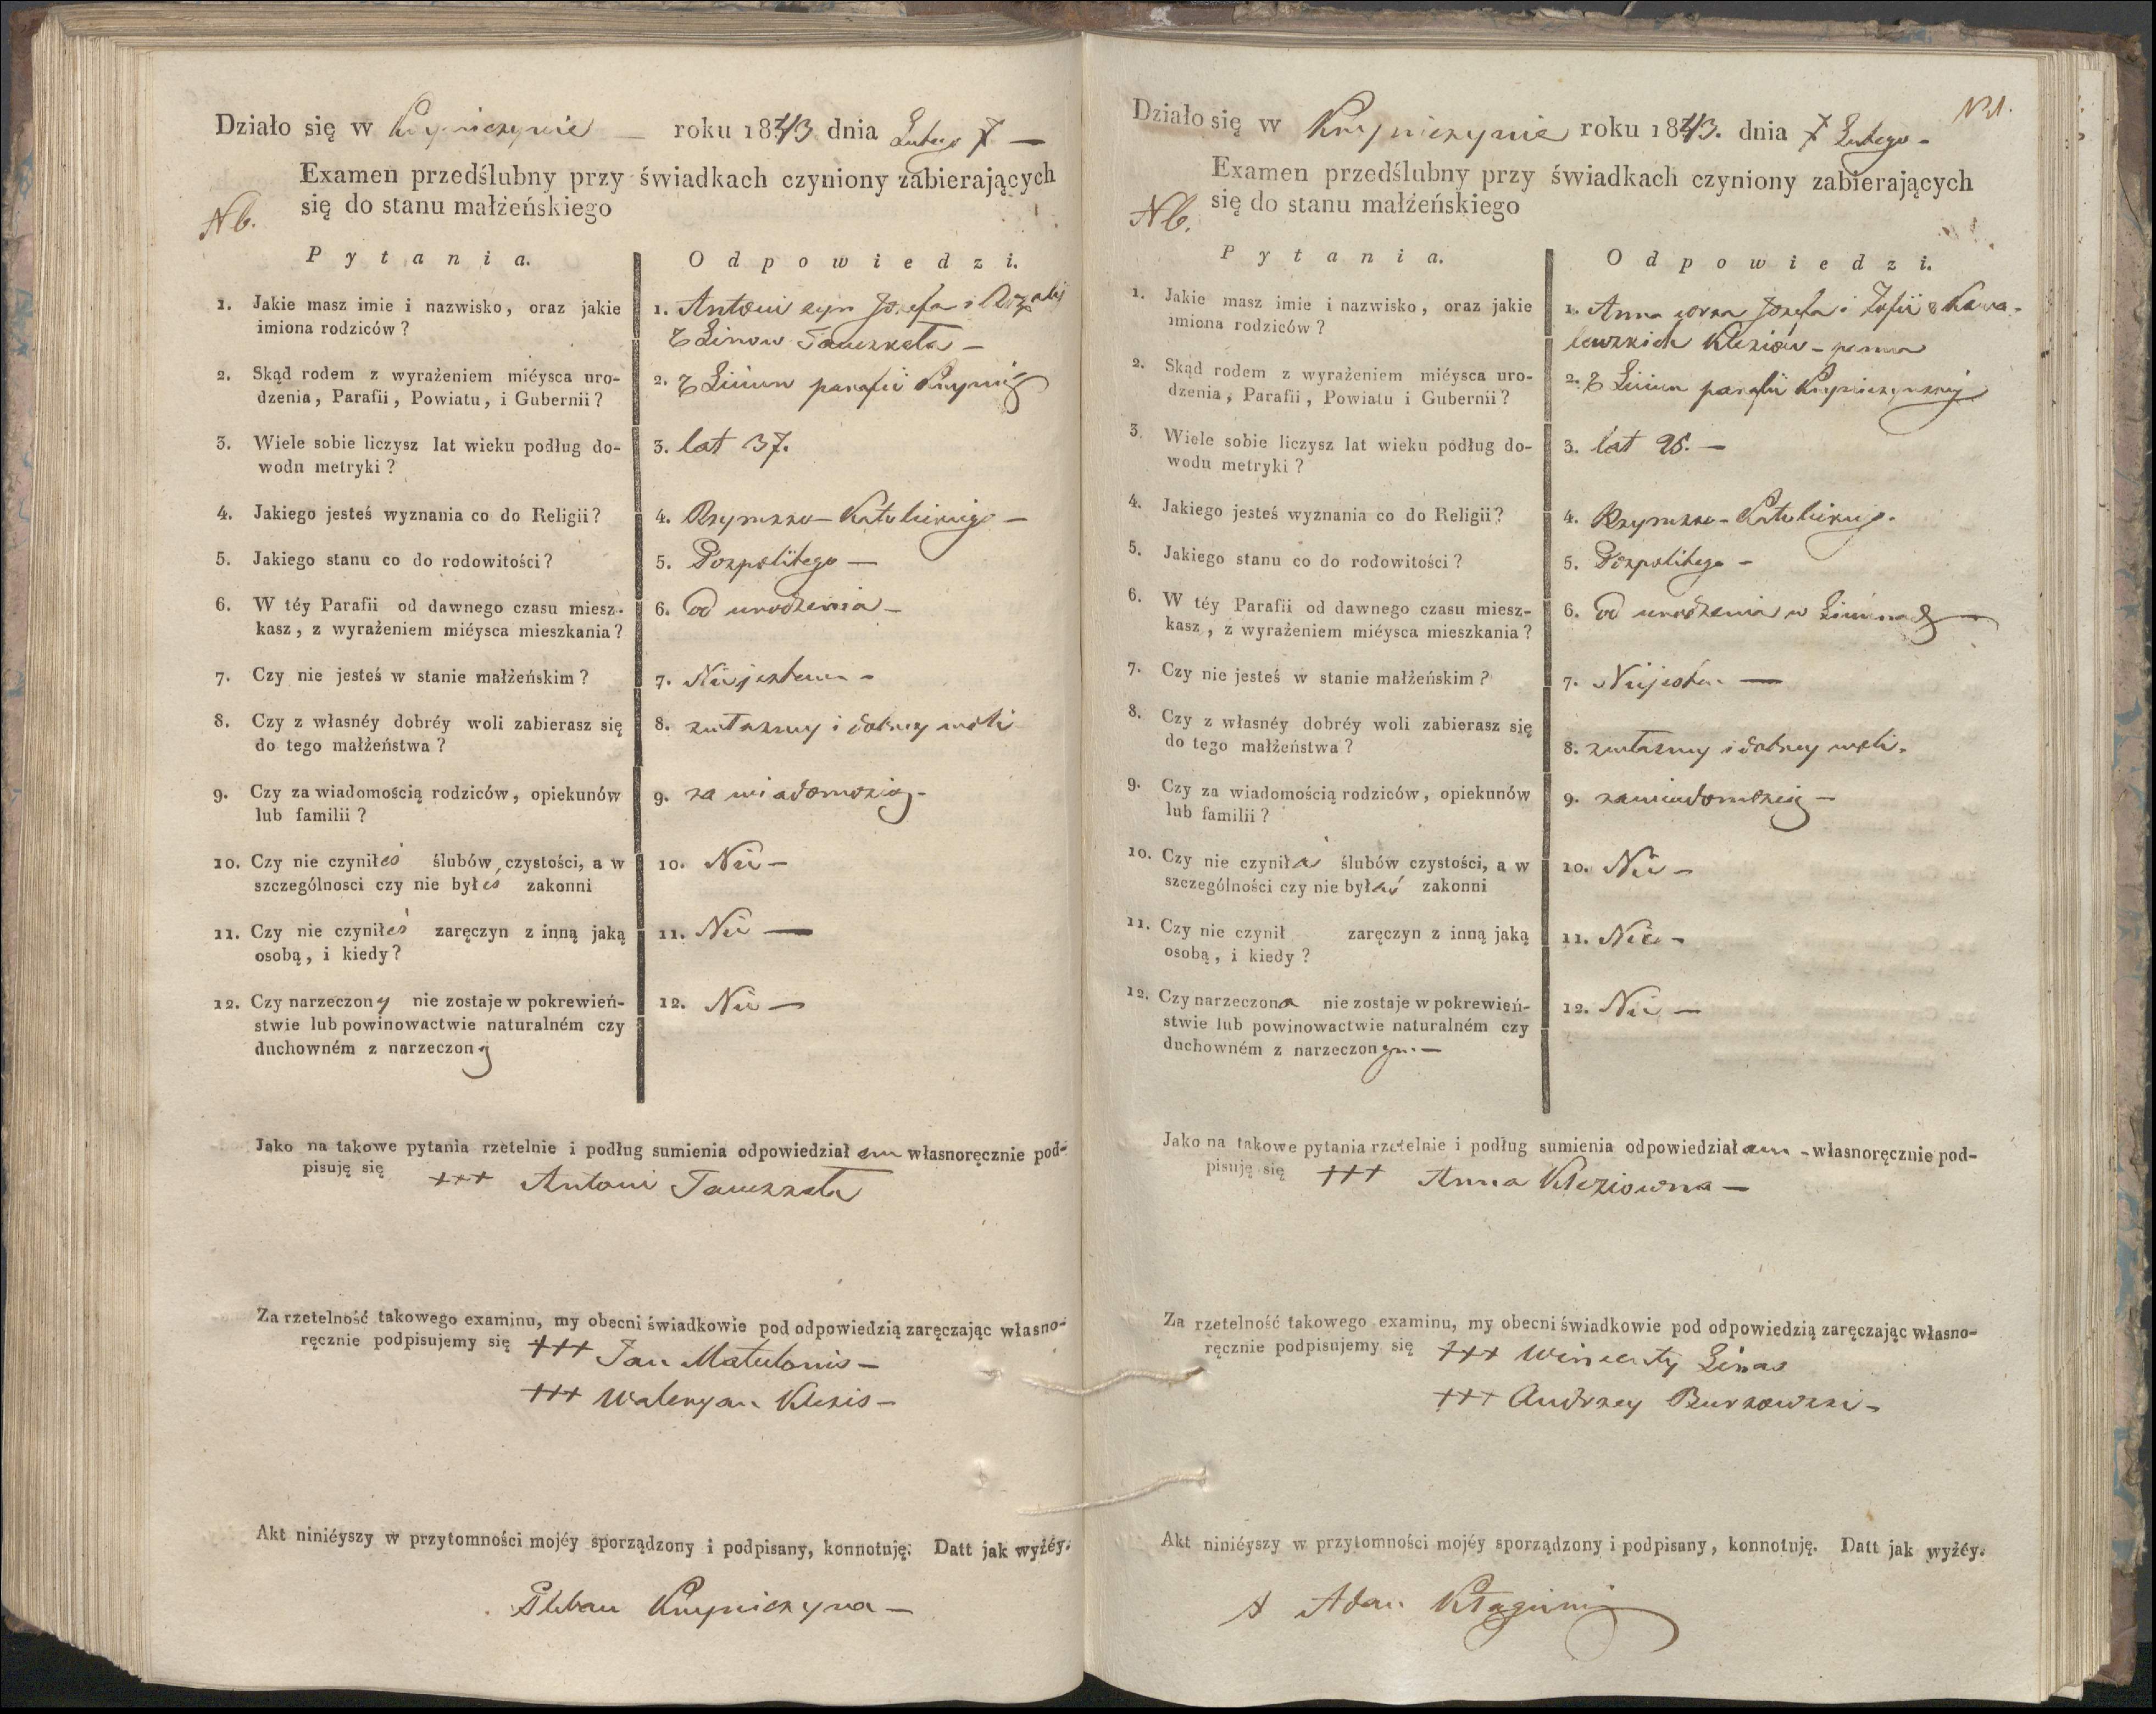 Działo się w Krypniczynie — roku 1843 dnia Lutego 7 —
Examen przedślubny przy świadkach czyniony zabierających
się do stanu małżeńskiego
Nb.
Pytania. Odpowiedzi.
1. Jakie masz imie i nazwisko, oraz jakie
imiona rodziców?
1. Antoni syn Jozefa i Rozalij
z Linow —
2. Skąd rodem z wyrażeniem miéysca uro-
dzenia, Parafii, Powiatu, i Gubernii?
2. z parafii
3. Wiele sobie liczysz lat wieku podług do-
wodu metryki?
3. lat 37.
4. Jakiego jesteś wyznania co do Religii?
4. Rzymsko-Katolickiego —
5. Jakiego stanu co do rodowitości?
5. Pospolitego —
6. W téy Parafii od dawnego czasu miesz-
kasz, z wyrażeniem miéysca mieszkania?
6. od urodzenia —
7. Czy nie jesteś w stanie małżeńskim?
7. Niejestem —
8. Czy z własnéy dobréy woli zabierasz się
do tego małżeństwa?
8. zwłasney i dobrey woli
9. Czy za wiadomością rodziców, opiekunów
lub familii?
9. za wiadomością —
10. Czy nie czyniłeś ślubów czystości, a w
szczególnosci czy nie byłeś zakonni
10. Nie —
11. Czy nie czyniłeś zaręczyn z inną jaką
osobą, i kiedy?
11. Nie —
12. Czy narzeczony nie zostaje w pokrewień-
stwie lub powinowactwie naturalném czy
duchowném z narzeczoną
12. Nie —
Jako na takowe pytania rzetelnie i podług sumienia odpowiedziałem własnoręcznie pod-
pisuję się +++ Antoni
Za rzetelność takowego examinu, my obecni świadkowie pod odpowiedzią zaręczając własno-
ręcznie podpisujemy się +++ Jan Matulonis —
+++ Waleryan Klezis —
Akt niniéyszy w przytomności mojéy sporządzony i podpisany, konnotuję. Datt jak wyżéy.
Pleban
N 1.
Działo się w roku 1843. dnia 7 Lutego —
Examen przedślubny przy świadkach czyniony zabierających
się do stanu małżeńskiego
Nb.
Pytania. Odpowiedzi.
1. Jakie masz imie i nazwisko, oraz jakie
imiona rodziców?
1. Anna corka Jozefa i Zofii z Kowa-
lewskich Kleziow — panna
2. Skąd rodem z wyrażeniem miéysca uro-
dzenia, Parafii, Powiatu i Gubernii?
2. z parafii
3. Wiele sobie liczysz lat wieku podług do-
wodu metryki?
3. lat 25. —
4. Jakiego jesteś wyznania co do Religii?
4. Rzymsko-Katolickiego.
5. Jakiego stanu co do rodowitości?
5. Pospolitego —
6. W téy Parafii od dawnego czasu miesz-
kasz, z wyrażeniem miéysca mieszkania?
6. od urodzenia w
7. Czy nie jesteś w stanie małżeńskim?
7. Niejestem —
8. Czy z własnéy dobréy woli zabierasz się
do tego małżeństwa?
8. zwłasney i dobrey woli.
9. Czy za wiadomością rodziców, opiekunów
lub familii?
9. zawiadomością —
10. Czy nie czyniłaś ślubów czystości, a w
szczególności czy nie byłaś zakonni
10. Nie —
11. Czy nie czynił zaręczyn z inną jaką
osobą, i kiedy?
11. Nie —
12. Czy narzeczona nie zostaje w pokrewień-
stwie lub powinowactwie naturalném czy
duchowném z narzeczonym. —
12. Nie —
Jako na takowe pytania rzetelnie i podług sumienia odpowiedziałam — własnoręcznie pod-
pisuję się +++ Anna Kleziowna —
Za rzetelność takowego examinu, my obecni świadkowie pod odpowiedzią zaręczając własno-
ręcznie podpisujemy się +++ Wincenty Linas
+++ Andrzey Burkowski —
Akt niniéyszy w przytomności mojéy sporządzony i podpisany, konnotuję. Datt jak wyżéy.
X Adam